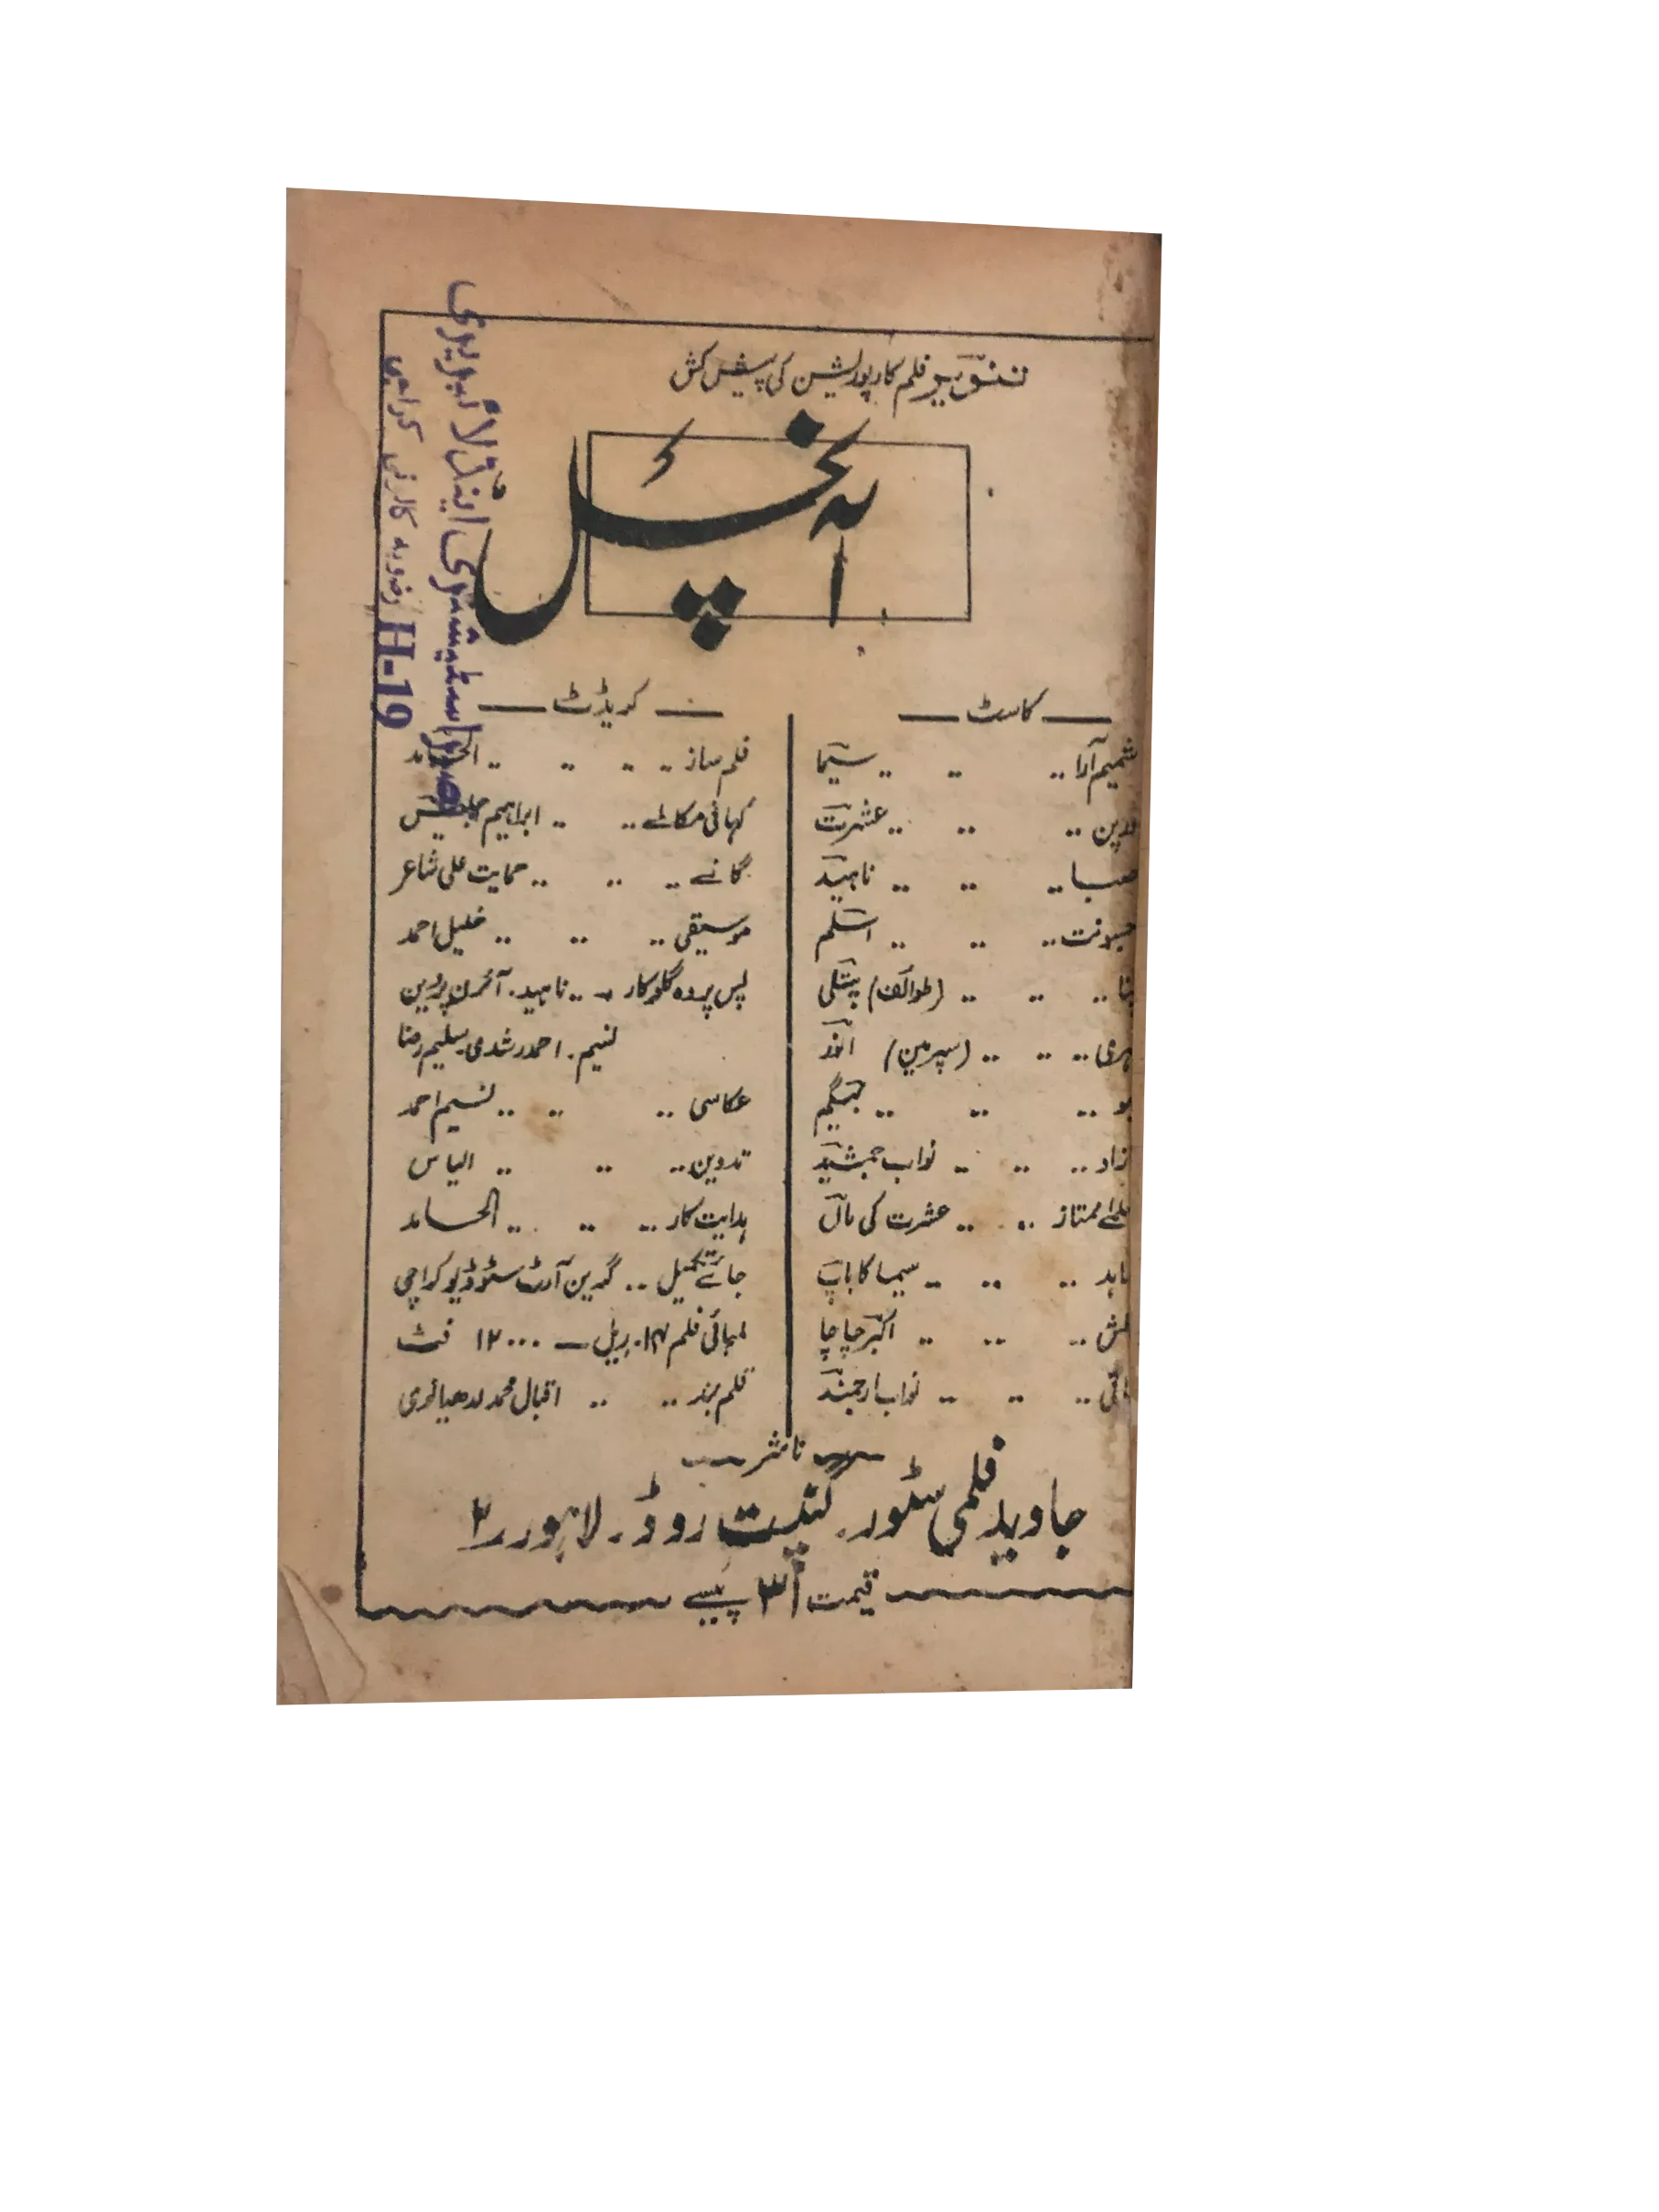 تنویر فلم کارپوریشن کی پیش کش
آنچل
کاسٹ
شمیم آرا .. .. .. سیما
.. .. .. عشرت
صبا .. .. .. ناہید
.. .. .. اسلم
.. .. .. (طوائف) پتلی
.. .. .. (سپرمین) انور
.. .. .. بیگم
.. .. .. نواب جمشید
ممتاز .. .. عشرت کی ماں
.. .. .. سیما کا باپ
.. .. .. اکبر چاچا
.. .. .. نواب ارجمند
کریڈٹ
فلم ساز .. .. .. .. الحامد
کہانی مکالمے .. .. ابراہیم جلیس
گانے .. .. .. حمایت علی شاعر
موسیقی .. .. .. خلیل احمد
پس پردہ گلوکار .. ناہید . آئرن پروین
نسیم . احمد رشدی . سلیم رضا
عکاسی .. .. .. نسیم احمد
تدوین .. .. .. الیاس
ہدایت کار .. .. .. الحامد
جائے تکمیل .. گرین آرٹ سٹوڈیو کراچی
لمبائی فلم ۱۴ . ریل — ۱۲۰۰۰ فٹ
قلم بند .. .. اقبال محمد لدھیانوی
ناشر
جاوید فلمی سٹور . گنپت روڈ . لاہور ۲
قیمت ۳۱ پیسے
اسٹیشنری اینڈ لائبریری
H-19 رضویہ کالونی کراچی